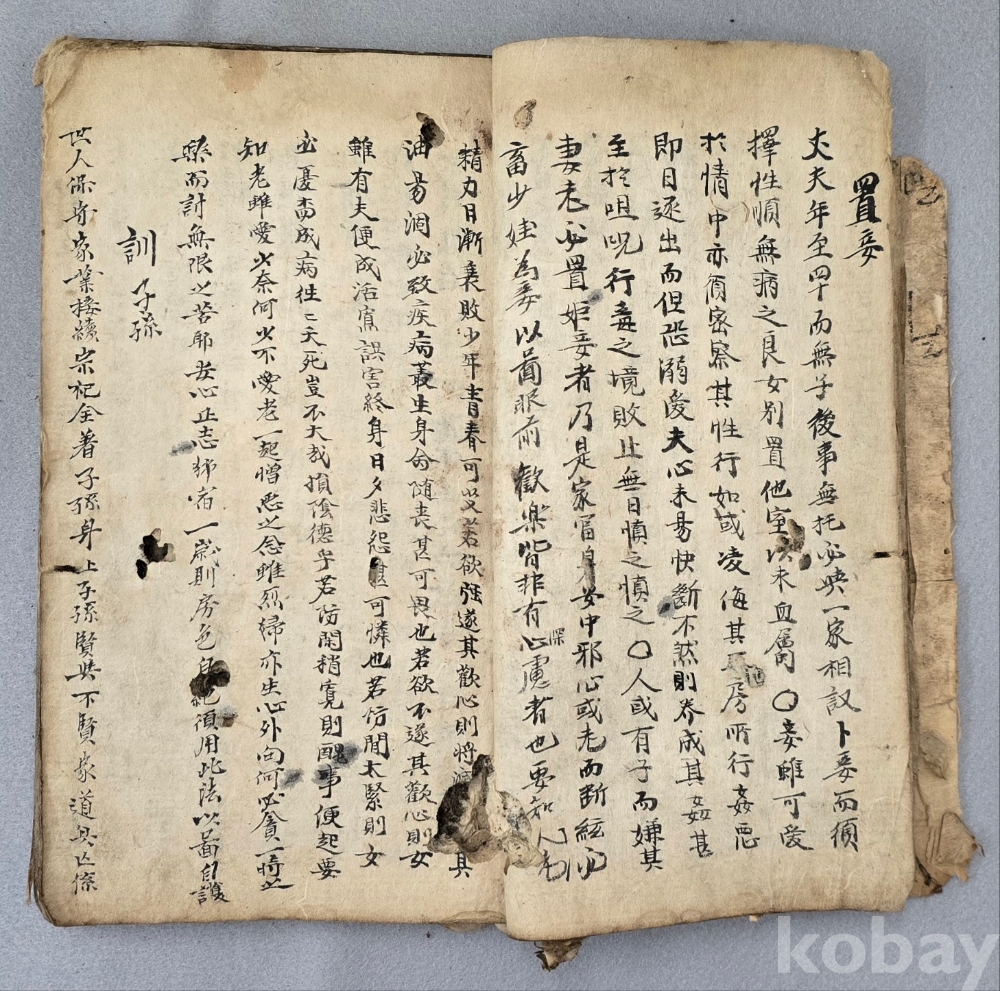 置妾
丈夫年至四十而無子後事無托必與一家相議卜妾而須
擇性順無病之良女別置他室以未血屬〇妾雖可愛
於情中亦須密察其性行如或凌侮其正房所行姦惡
即日逐出而但恐溺愛夫心未易快斷不然則养成其姦甚
至於咀呪行毒之境敗亡無日愼之愼之〇人或有子而嫌其
妻老必置姬妾者乃是家富身安中邪心或老而断絃必
畜少娃為妾以啚眼前歡樂皆非有深心慮者也要知人老
精力日漸衰敗少年青春可以若欲强遂其歡心則將 其
油易涸必致疾病叢生身命随丧甚可畏也若欲不遂其歡心則女
雖有夫便成活寡誤害終身日夕悲怨甚可憐也若防閑太緊則女
必憂欝成病徃〻夭死豈不大哉損陰德乎若防閑稍寬則醜事便起要
知老雖愛少奈何少不愛老一起憎惡之念雖烈婦亦生心外向何必貪一時之
樂而討無限之苦耶安心止志 宿一嵗則房色 絶須用此法以啚自護
訓子孫
世人保守家業接續宗祀全著子孫身上子孫賢與不賢家道興亡係
kobay